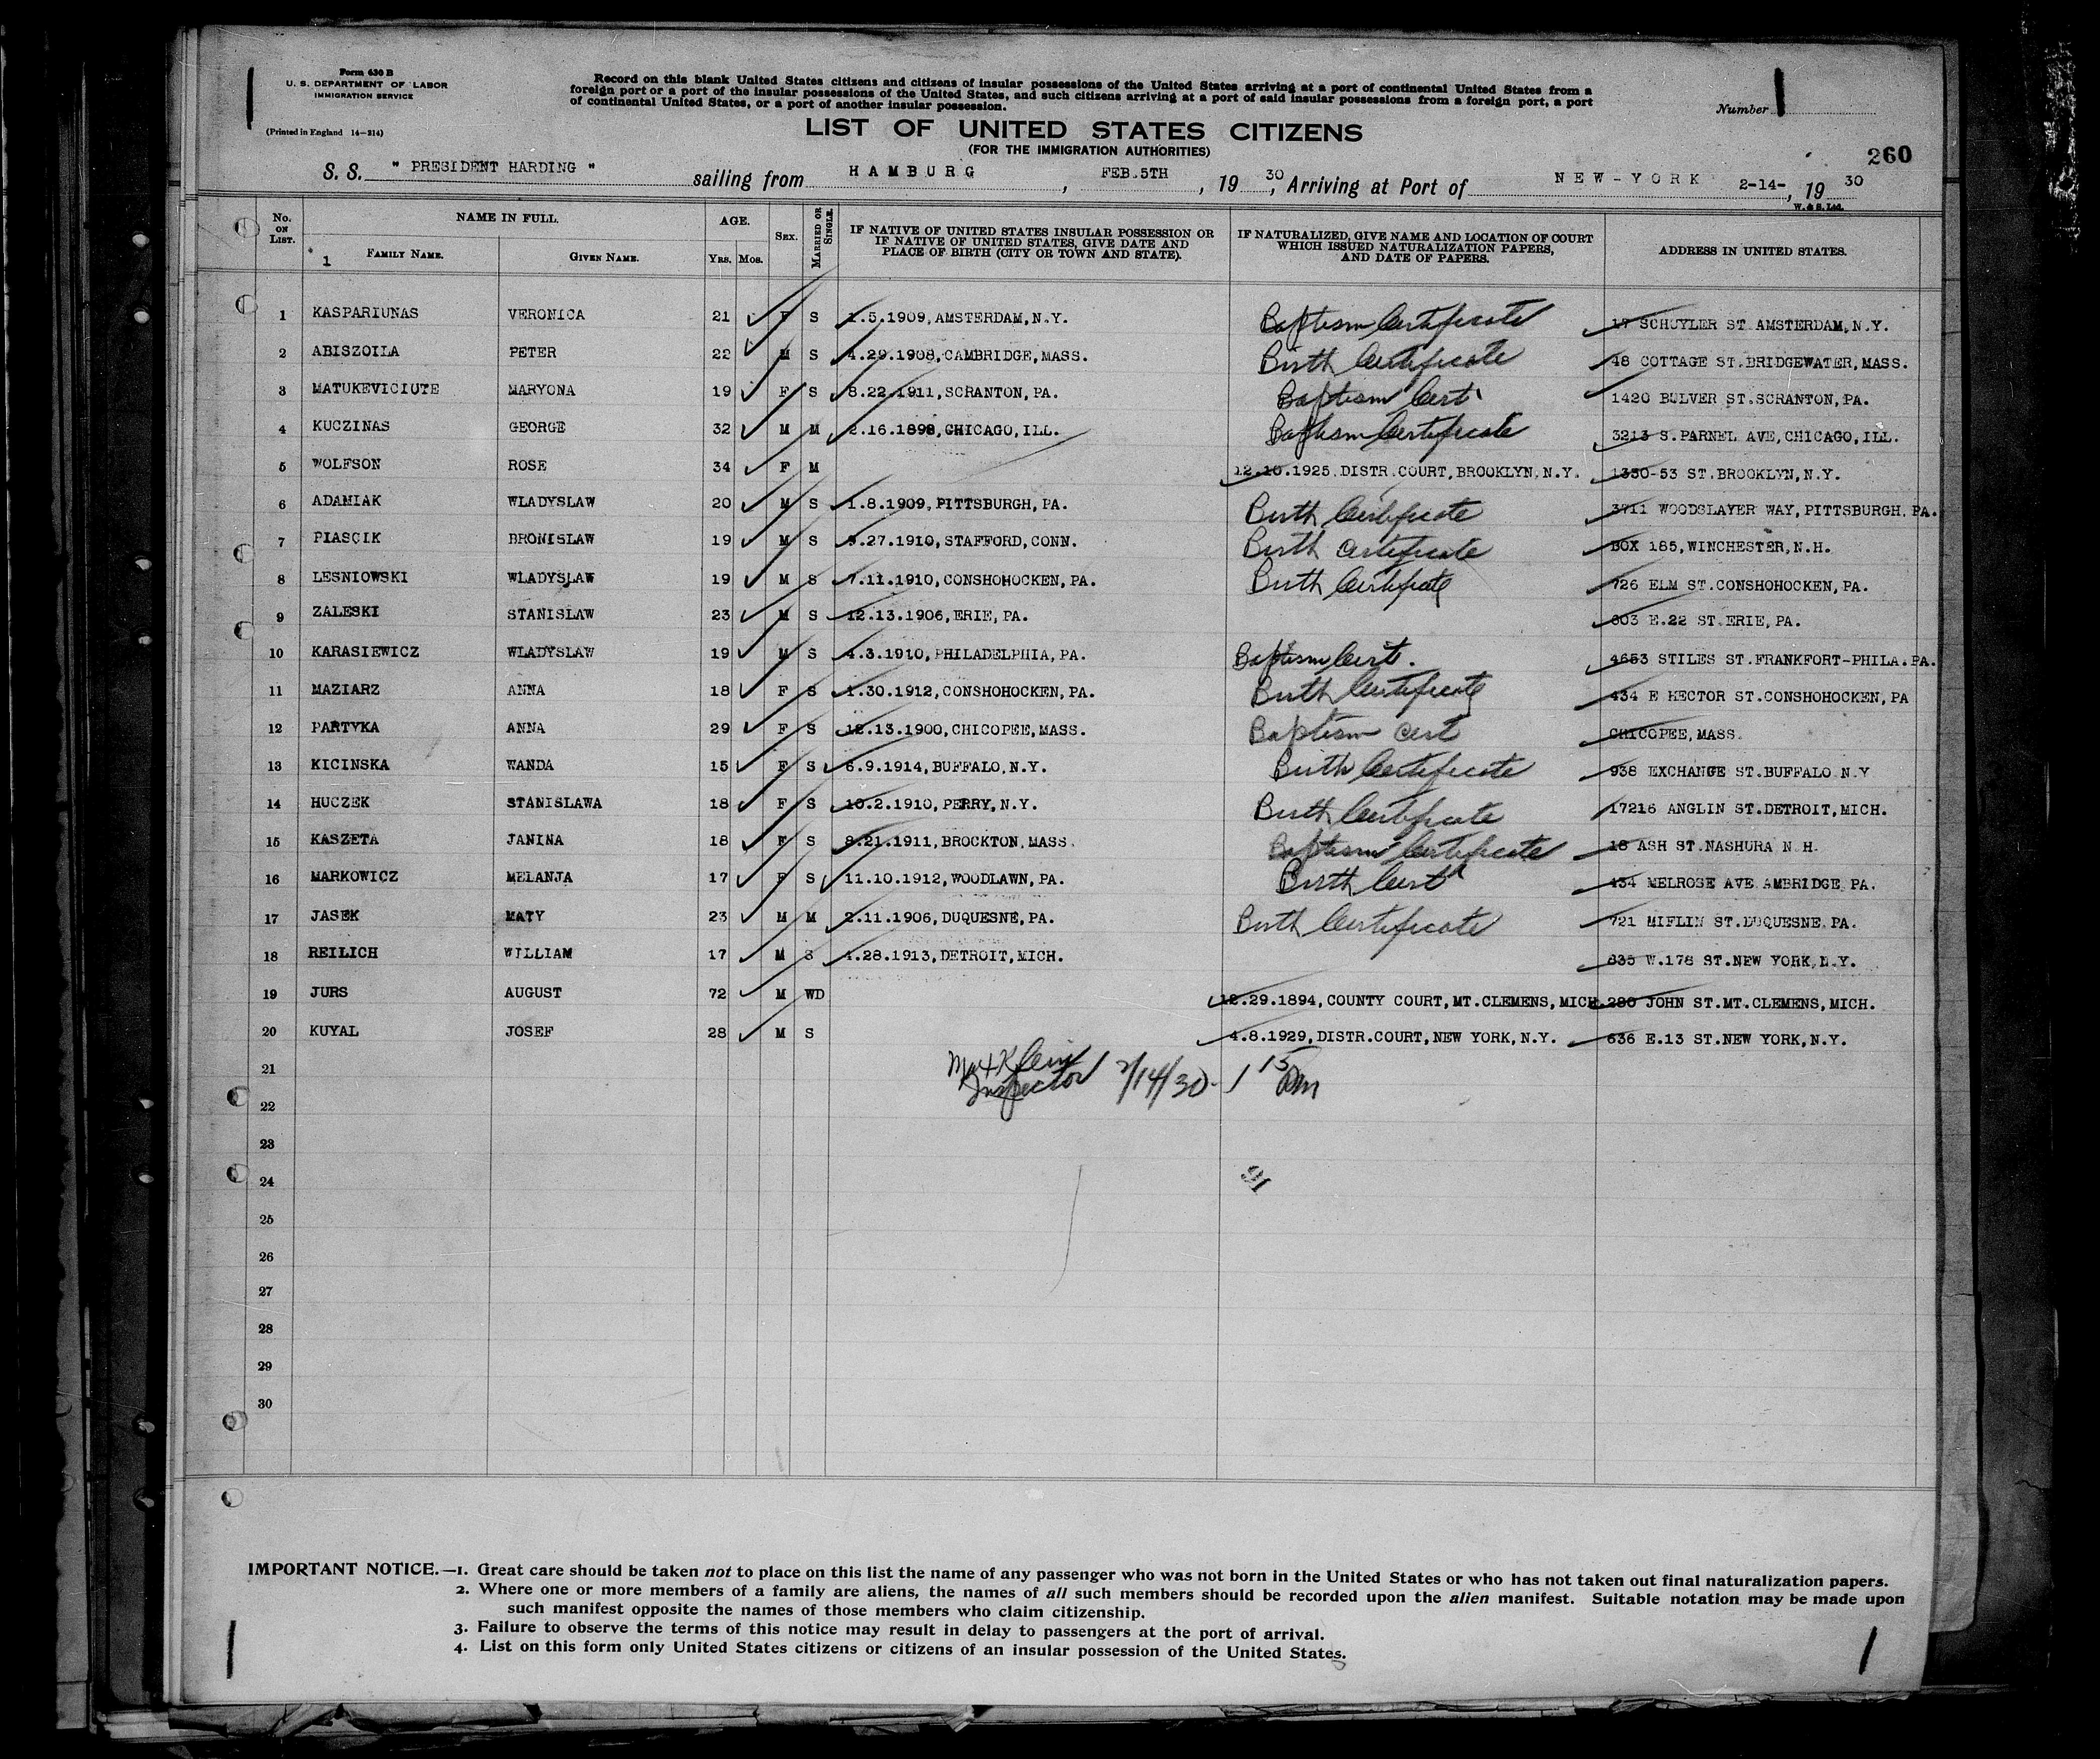 Form 630 B
U. S. DEPARTMENT OF LABOR
IMMIGRATION SERVICE
(Printed in England 14-314)
Record on this blank United States citizens and citizens of insular possessions of the United States arriving at a port of continental United States from a
foreign port or a port of the insular possessions of the United States, and such citizens arriving at a port of said insular possessions from a foreign port, a port
of continental United States, or a port of another insular possession.
Number 1
LIST OF UNITED STATES CITIZENS
(FOR THE IMMIGRATION AUTHORITIES)
260
S. S. " PRESIDENT HARDING " sailing from HAMBURG, FEB.5TH, 19 30, Arriving at Port of NEW-YORK 2-14-, 19 30
W. & S. Ltd.
No. ON LIST. NAME IN FULL. AGE. SEX. MARRIED OR SINGLE. IF NATIVE OF UNITED STATES INSULAR POSSESSION OR IF NATIVE OF UNITED STATES, GIVE DATE AND PLACE OF BIRTH (CITY OR TOWN AND STATE). IF NATURALIZED, GIVE NAME AND LOCATION OF COURT WHICH ISSUED NATURALIZATION PAPERS, AND DATE OF PAPERS. ADDRESS IN UNITED STATES.
1 FAMILY NAME. GIVEN NAME. YRS. MOS.
1 KASPARIUNAS VERONICA 21 F S 1.5.1909, AMSTERDAM, N.Y. Baptism Certificate 17 SCHUYLER ST AMSTERDAM, N.Y.
2 ABISZOILA PETER 22 M S 4.29.1908, CAMBRIDGE, MASS. Birth Certificate 48 COTTAGE ST.BRIDGEWATER, MASS.
3 MATUKEVICIUTE MARYONA 19 F S 8.22.1911, SCRANTON, PA. Baptism Cert. 1420 BULVER ST.SCRANTON, PA.
4 KUCZINAS GEORGE 32 M M 2.16.1898, CHICAGO, ILL. Baptism Certificate 3213 S.PARNEL AVE, CHICAGO, ILL.
5 WOLFSON ROSE 34 F M 12.10.1925. DISTR.COURT, BROOKLYN, N.Y. 1350-53 ST.BROOKLYN, N.Y.
6 ADAMIAK WLADYSLAW 20 M S 1.8.1909, PITTSBURGH, PA. Birth Certificate 3711 WOODSLAYER WAY, PITTSBURGH, PA.
7 PIASCIK BRONISLAW 19 M S 9.27.1910, STAFFORD, CONN. Birth Certificate BOX 185, WINCHESTER, N.H.
8 LESNIOWSKI WLADYSLAW 19 M S 7.11.1910, CONSHOHOCKEN, PA. Birth Certificate 726 ELM ST.CONSHOHOCKEN, PA.
9 ZALESKI STANISLAW 23 M S 12.13.1906, ERIE, PA. 803 E.22 ST.ERIE, PA.
10 KARASIEWICZ WLADYSLAW 19 M S 4.3.1910, PHILADELPHIA, PA. Baptism Cert. 4653 STILES ST.FRANKFORT-PHILA.PA.
11 MAZIARZ ANNA 18 F S 1.30.1912, CONSHOHOCKEN, PA. Birth Certificate 434 E HECTOR ST.CONSHOHOCKEN, PA
12 PARTYKA ANNA 29 F S 12.13.1900, CHICOPEE, MASS. Baptism Cert CHICOPEE, MASS.
13 KICINSKA WANDA 15 F S 6.9.1914, BUFFALO, N.Y. Birth Certificate 938 EXCHANGE ST.BUFFALO N.Y
14 HUCZEK STANISLAWA 18 F S 10.2.1910, PERRY, N.Y. Birth Certificate 17216 ANGLIN ST.DETROIT, MICH.
15 KASZETA JANINA 18 F S 8.21.1911, BROCKTON, MASS. Baptism Certificate 18 ASH ST.NASHURA N.H.
16 MARKOWICZ MELANJA 17 F S 11.10.1912, WOODLAWN, PA. Birth Cert 434 MELROSE AVE AMBRIDGE PA.
17 JASEK MATY 23 M M 2.11.1906, DUQUESNE, PA. Birth Certificate 721 MIFLIN ST.DUQUESNE, PA.
18 REILICH WILLIAM 17 M S 1.28.1913, DETROIT, MICH. 635 W.178 ST.NEW YORK, N.Y.
19 JURS AUGUST 72 M WD 12.29.1894, COUNTY COURT, MT.CLEMENS, MICH. 280 JOHN ST.MT.CLEMENS, MICH.
20 KUYAL JOSEF 28 M S 4.8.1929, DISTR.COURT, NEW YORK, N.Y. 636 E.13 ST.NEW YORK, N.Y.
21 Max Klein
Inspector 2/14/30 - 1 15 PM
22
23
24 16
25
26
27
28
29
30
IMPORTANT NOTICE.—1. Great care should be taken not to place on this list the name of any passenger who was not born in the United States or who has not taken out final naturalization papers.
2. Where one or more members of a family are aliens, the names of all such members should be recorded upon the alien manifest. Suitable notation may be made upon
such manifest opposite the names of those members who claim citizenship.
3. Failure to observe the terms of this notice may result in delay to passengers at the port of arrival.
4. List on this form only United States citizens or citizens of an insular possession of the United States.